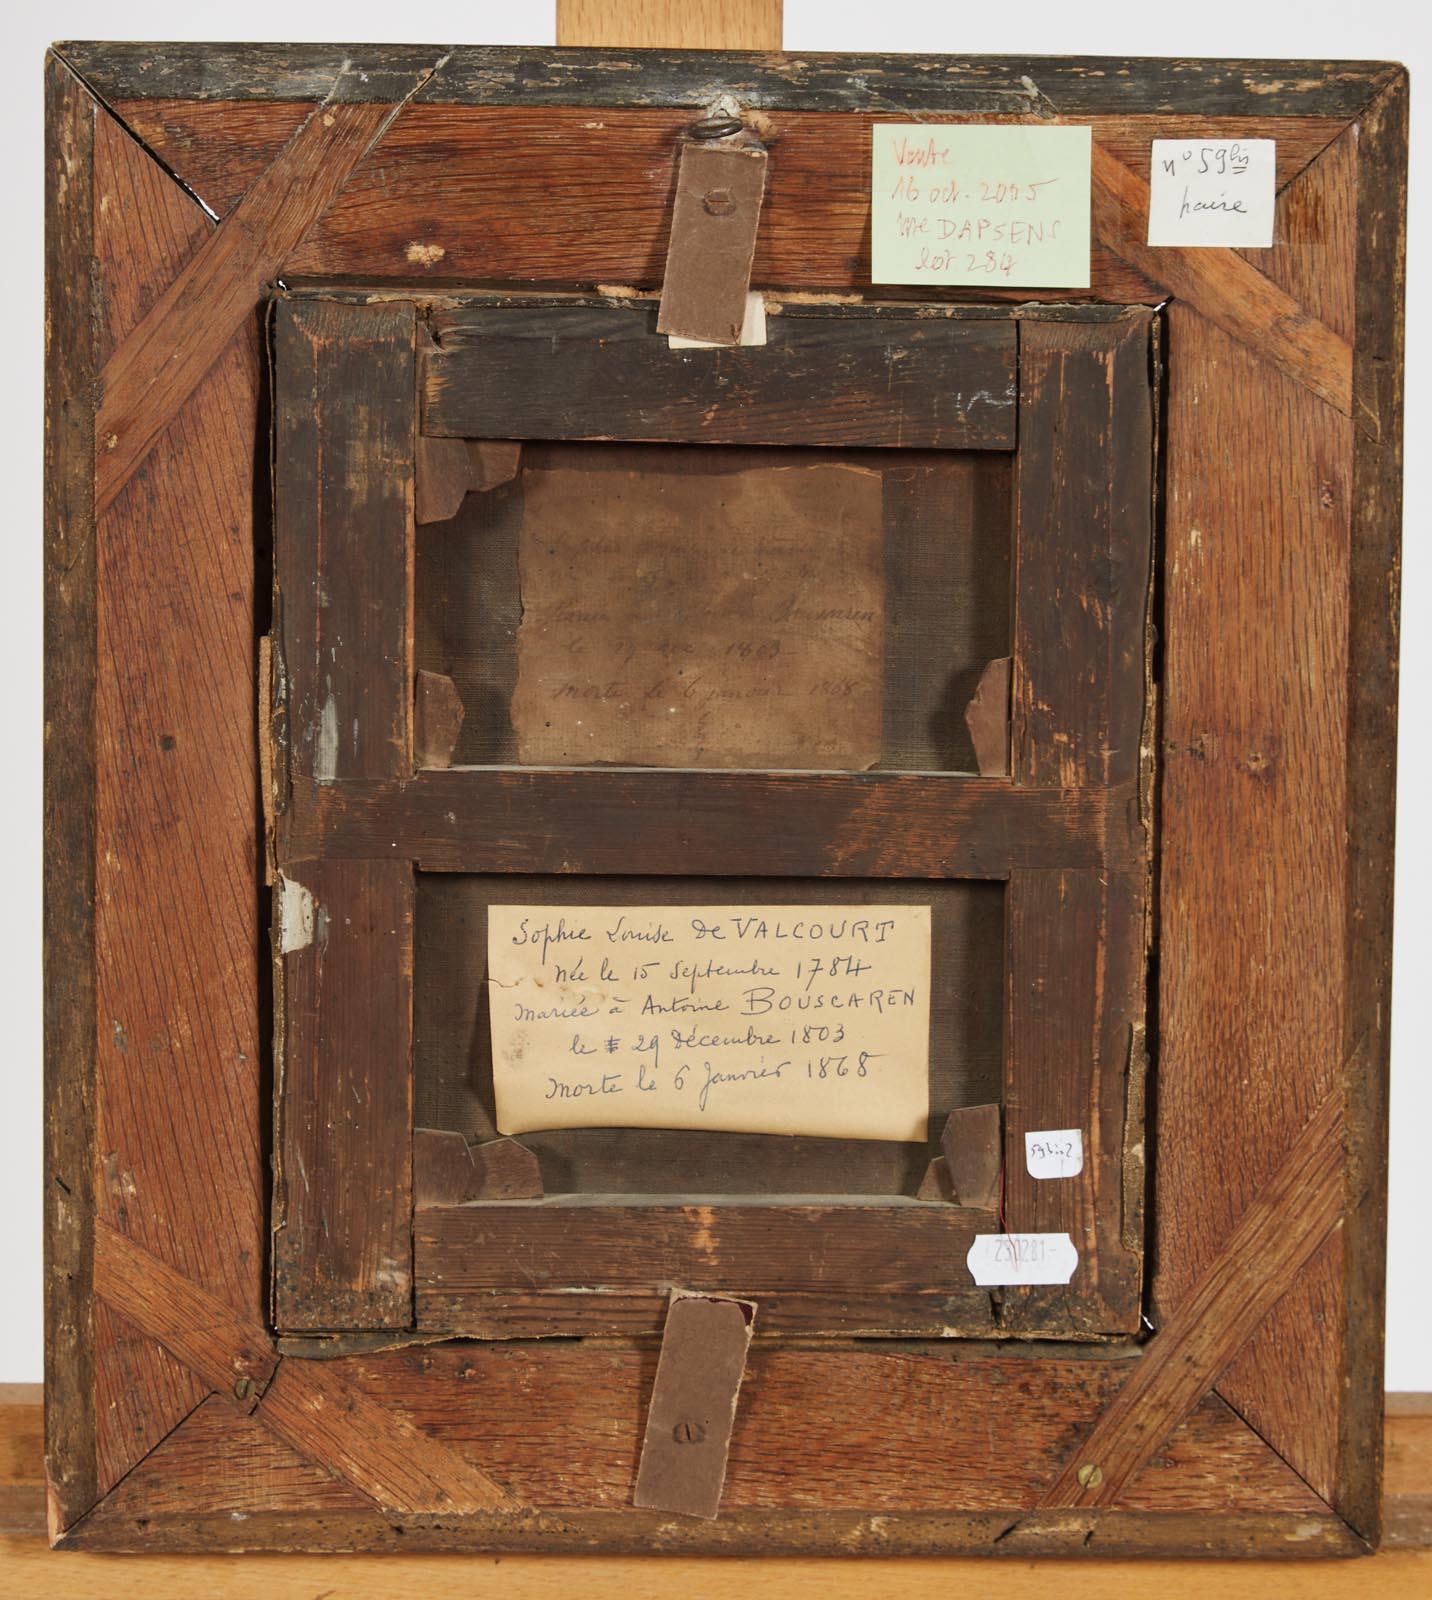 Vente
16 oct. 2005
Me DAPSENS
lot 284
n° 59 bis
paire
Bouscaren
le 29 1803
Morte le 6 janvier 1868
Sophie Louise De VALCOURT
Née le 15 Septembre 1784
Mariée à Antoine BOUSCAREN
le 29 Décembre 1803
Morte le 6 Janvier 1868
59bis2
230281-